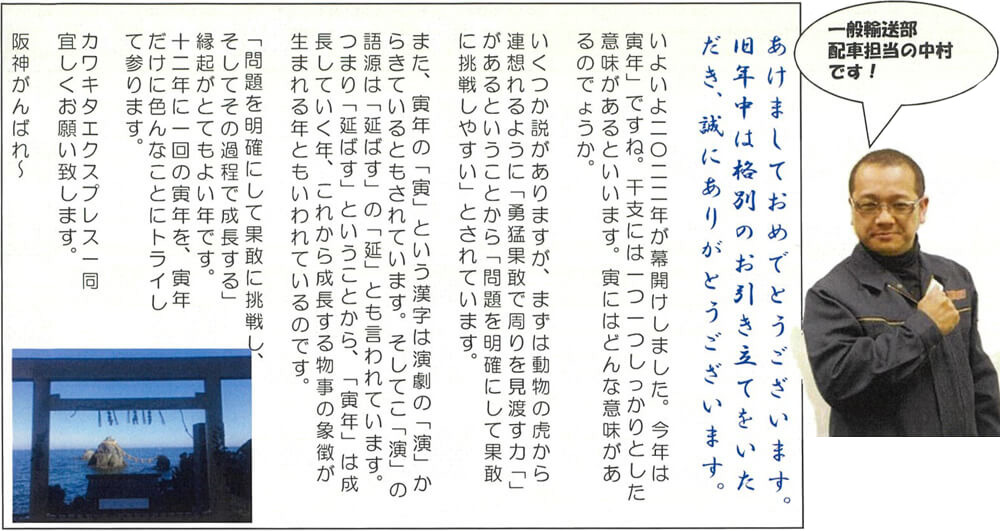 一般輸送部
配車担当の中村
です！
あけましておめでとうございます。
旧年中は格別のお引き立てをいた
だき、誠にありがとうございます。
いよいよ二〇二二年が幕開けしました。今年は
寅年」ですね。干支には一つ一つしっかりとした
意味があるといいます。寅にはどんな意味があ
るのでょうか。
いくつか説がありますが、まずは動物の虎から
連想れるように「勇猛果敢で周りを見渡す力「」
があるということから「問題を明確にして果敢
に挑戦しやすい」とされています。
また、寅年の「寅」という漢字は演劇の「演」か
らきているともされています。そしてこ「演」の
語源は「延ばす」の「延」とも言われています。
つまり「延ばす」ということから、「寅年」は成
長していく年、これから成長する物事の象徴が
生まれる年ともいわれているのです。
「問題を明確にして果敢に挑戦し、
そしてその過程で成長する」
縁起がとてもよい年です。
十二年に一回の寅年を、寅年
だけに色んなことにトライし
て参ります。
カワキタエクスプレス一同
宜しくお願い致します。
阪神がんばれ〜